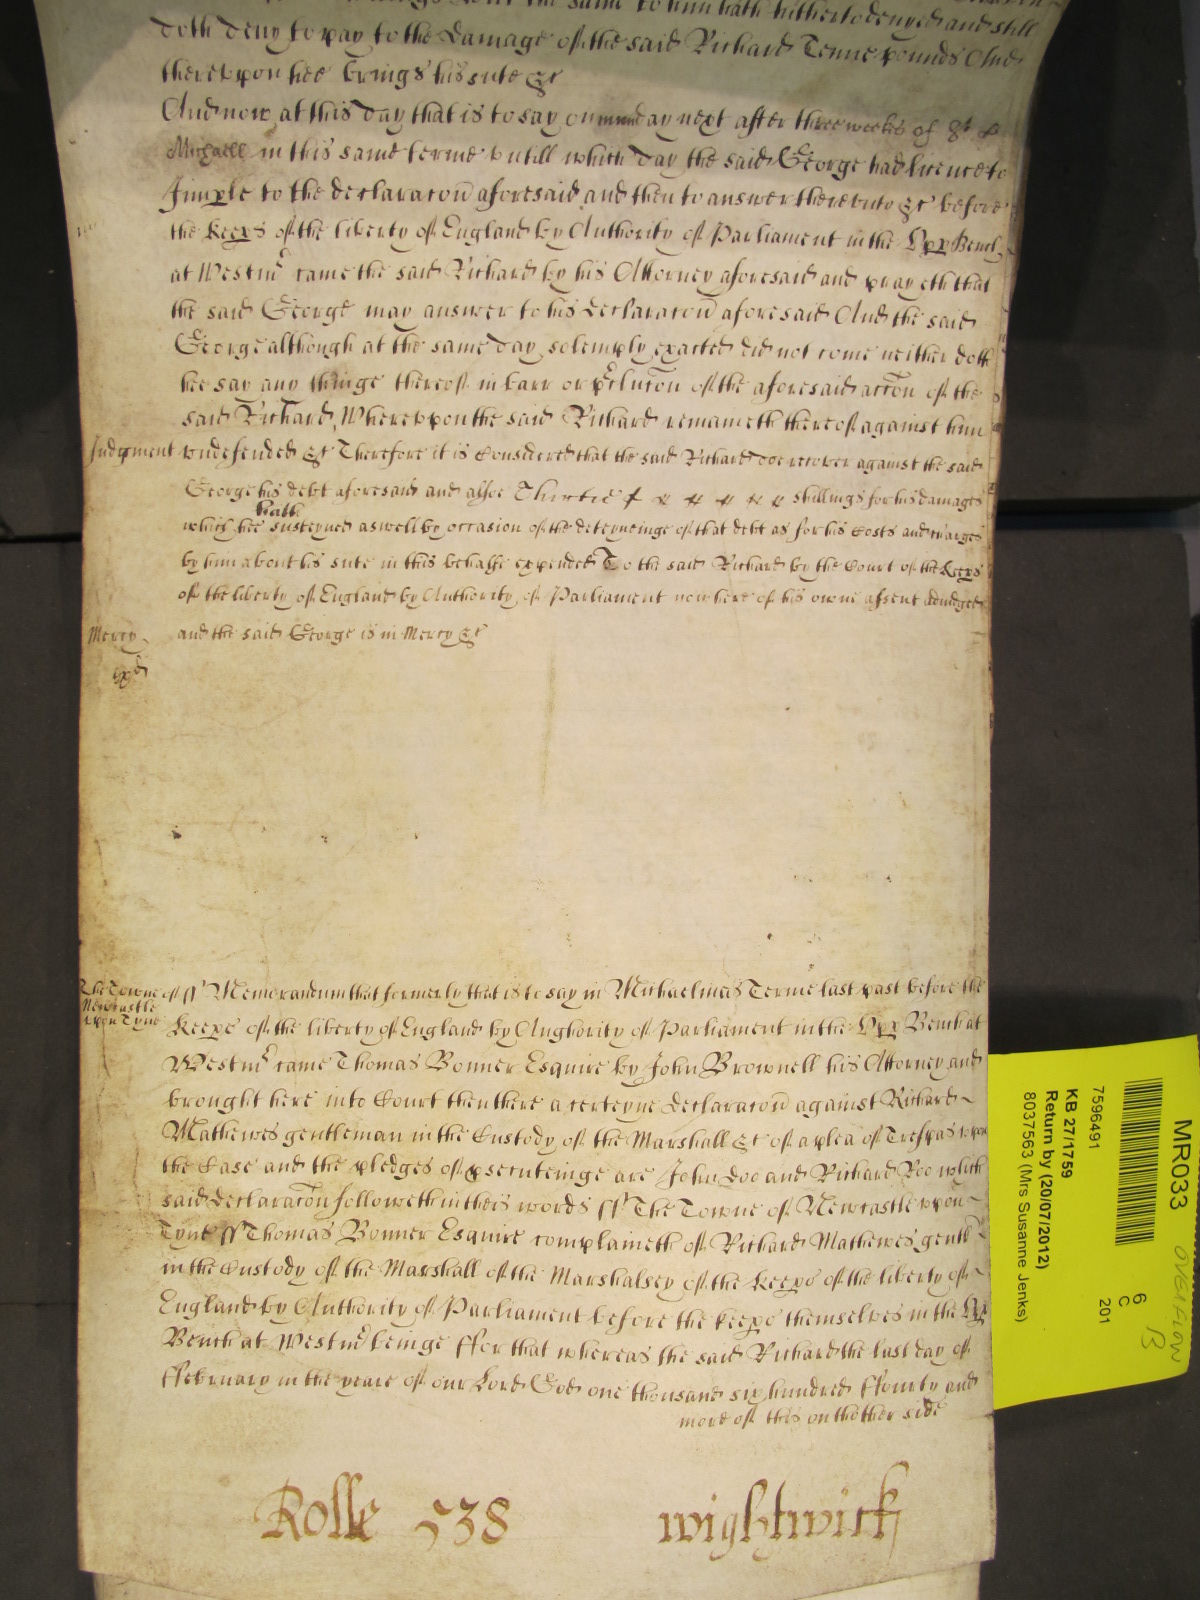 the same to him hath hitherto denyed and still
doth deny to pay to the Damage of the said Richard Tenne pounds And
thereupon hee brings his sute &c
And now at this day that is to say on munday next after three weekes of St
Michaell in this same terme untill which day the said George had licence to
Imple to the declaracon aforesaid and then to answer thereunto &c before
the Keeps of the liberty of England by Authority of Parliament in the Upp Bench
at Westmr came the said Richard by his Attorney aforesaid and prayeth that
the said George may answer to his declaracon aforesaid And the said
George although at the same day solemply exacted did not come neither doth
hee say any thinge thereof in barr or preclucon of the aforesaid accon of the
said Richard Whereuppon the said Richard remaineth thereof against him
Judgment undefended &c Therefore it is Considered that the said Richard doe recover against the said
George his debt aforesaid and alsoe Thirtie shillings for his damages
which hee hath susteyned aswell by occasion of the deteyneinge of that debt as for his Costs and charges
by him about his sute in this behalfe expended To the said Richard by the Court of the Keeps
of the liberty of England by Authority of Parliament now here of his owne assent adiudged
Mercy and the said George is in Mercy &c
The Towne of Newcastle upon Tyne ss Memorandum that formerly that is to say in Michaelmas Terme last past before the
Keeps of the liberty of England by Aughority of Parliament in the Upp Bench at
Westmr came Thomas Bonner Esquire by John Brownell his Attorney and
brought here into Court then there a certeyne declaracon against Richard
Mathewes gentleman in the Custody of the Marshall &c of a plea of Trespas upon
the Case and the pledges of psecuteinge are John Doo and Richard Roo which
said declaracon followeth in theis words ss The Towne of Newcastle upon
Tyne ss Thomas Bonner Esquire complaineth of Richard Mathewes gentl
in the Custody of the Marshall of the Marshalsey of the Keeps of the liberty of
England by Authority of Parliament before the keeps themselves in the Upp
Bench at Westmr beinge ffor that whereas the said Richard the last day of
ffebruary in the yeare of our Lord God one thousand six hundred ffourty and
more of this on thother side
Rolle 538 wightwick
MR033 OVERFLOW
6
C
201
7596491
KB 27/1759
Return by (20/07/2012)
8037563 (Mrs Susanne Jenks)